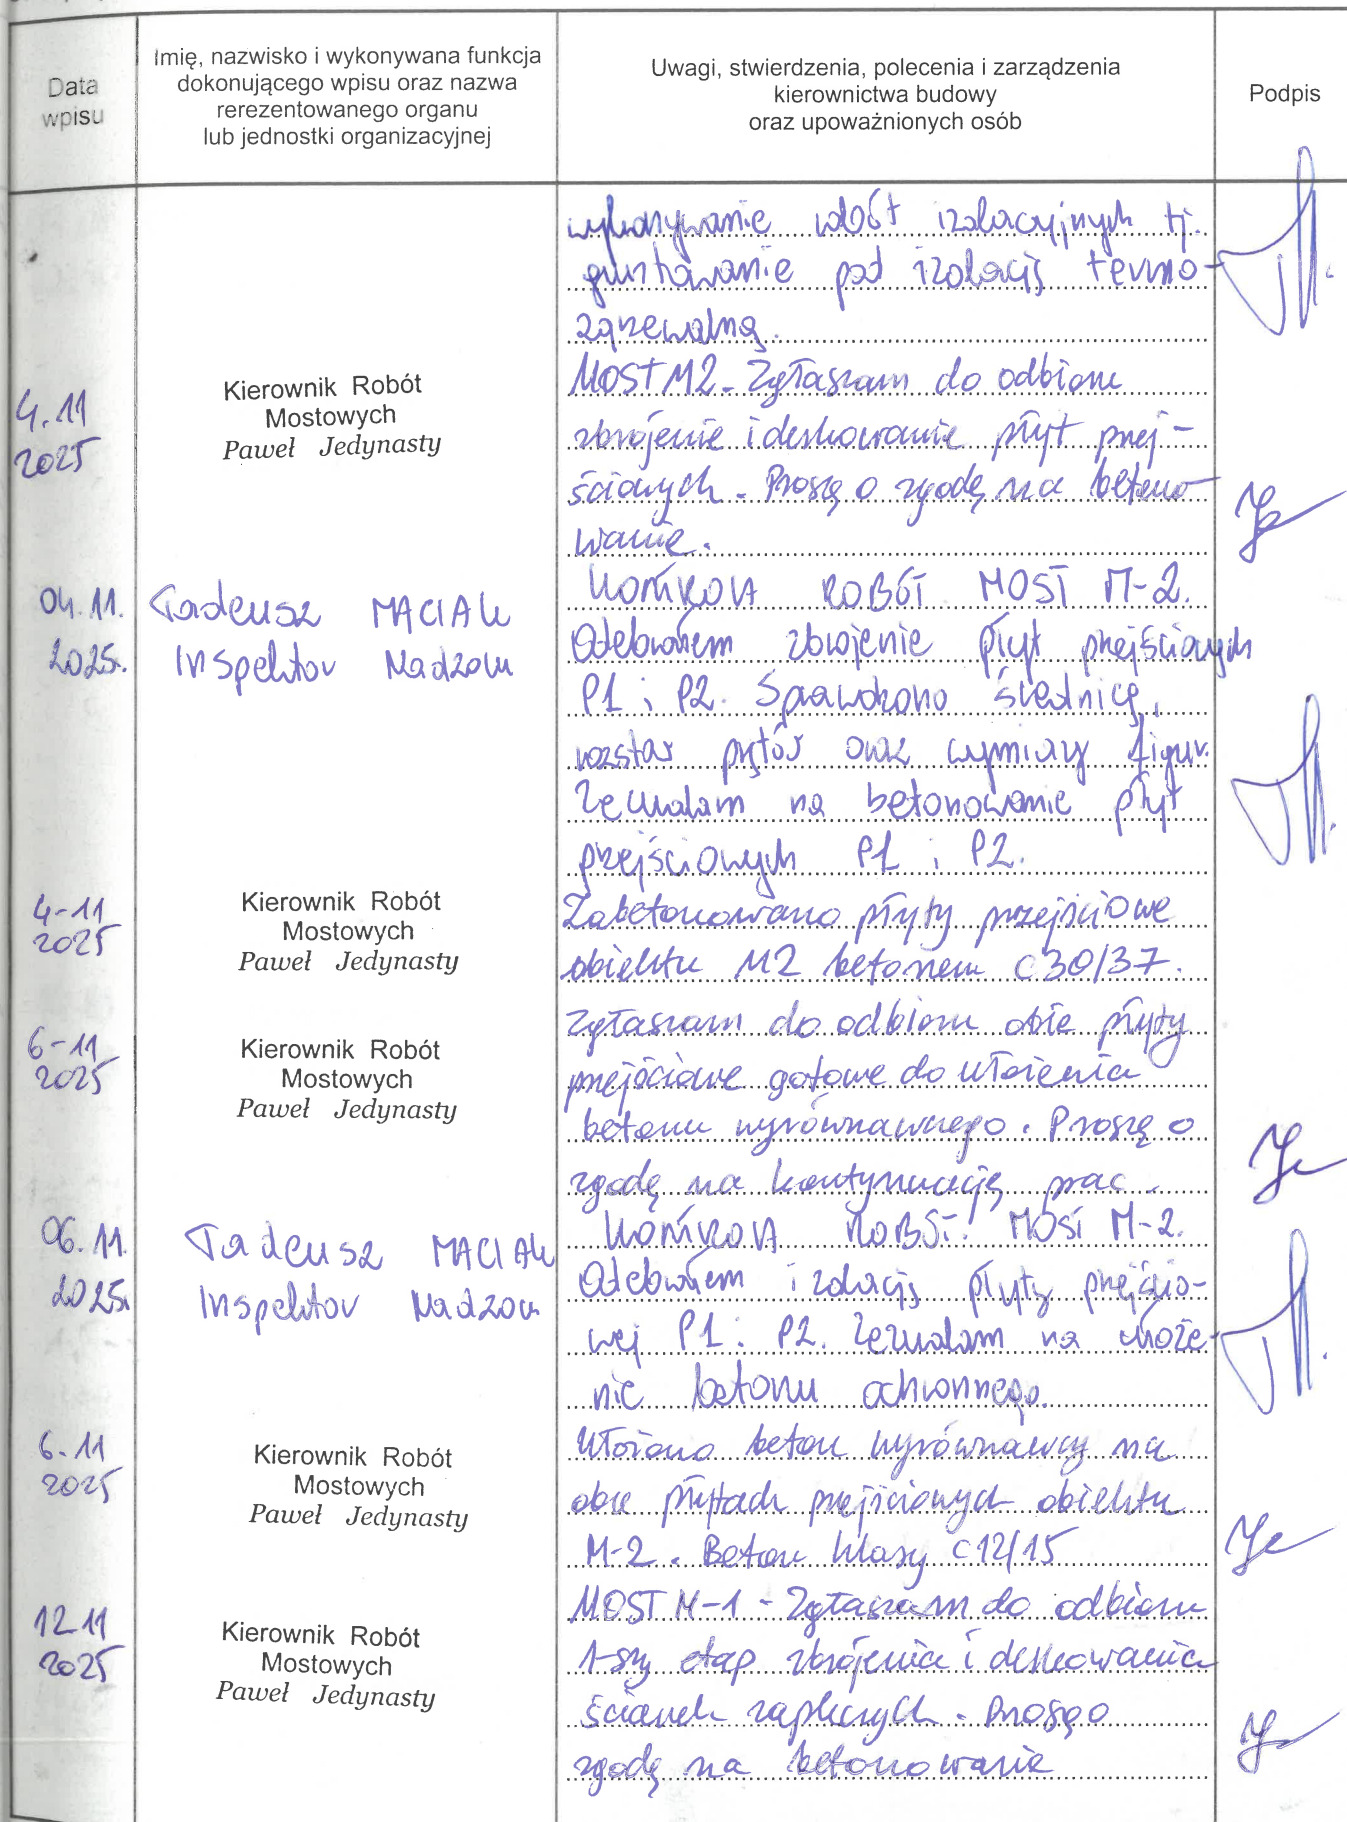 Data
wpisu
Imię, nazwisko i wykonywana funkcja
dokonującego wpisu oraz nazwa
rerezentowanego organu
lub jednostki organizacyjnej
Uwagi, stwierdzenia, polecenia i zarządzenia
kierownictwa budowy
oraz upoważnionych osób
Podpis
wykonywanie robót izolacyjnych tj.
gruntowanie pod izolację termo-
zgrzewalną.
4.11
2025
Kierownik Robót
Mostowych
Paweł Jedynasty
MOST M2 - Zgłaszam do odbioru
zbrojenie i deskowanie płyt przej-
ściowych. Proszę o zgodę na betono-
wanie.
04.11.
2025r.
Tadeusz MACIAK
Inspektor Nadzoru
KONTROLA ROBÓT MOST M-2.
Odebrałem zbrojenie płyt przejściowych
P1 i P2. Sprawdzono średnicę,
rozstaw prętów oraz wymiary figur.
Zezwalam na betonowanie płyt
przejściowych P1 i P2.
4-11
2025
Kierownik Robót
Mostowych
Paweł Jedynasty
Zabetonowano płyty przejściowe
obiektu M2 betonem C30/37.
6-11
2025
Kierownik Robót
Mostowych
Paweł Jedynasty
Zgłaszam do odbioru obie płyty
przejściowe gotowe do ułożenia
betonu wyrównawczego. Proszę o
zgodę na kontynuację prac.
06.11.
2025r.
Tadeusz MACIAK
Inspektor Nadzoru
KONTROLA ROBÓT. MOST M-2.
Odebrałem izolację płyty przejścio-
wej P1 i P2. Zezwalam na ułoże-
nie betonu ochronnego.
6.11
2025
Kierownik Robót
Mostowych
Paweł Jedynasty
Ułożono beton wyrównawczy na
obu płytach przejściowych obiektu
M-2. Beton klasy C12/15
12.11
2025
Kierownik Robót
Mostowych
Paweł Jedynasty
MOST M-1 - Zgłaszam do odbioru
1-szy etap zbrojenia i deskowania
ścianek zaplecznych. Proszę o
zgodę na betonowanie